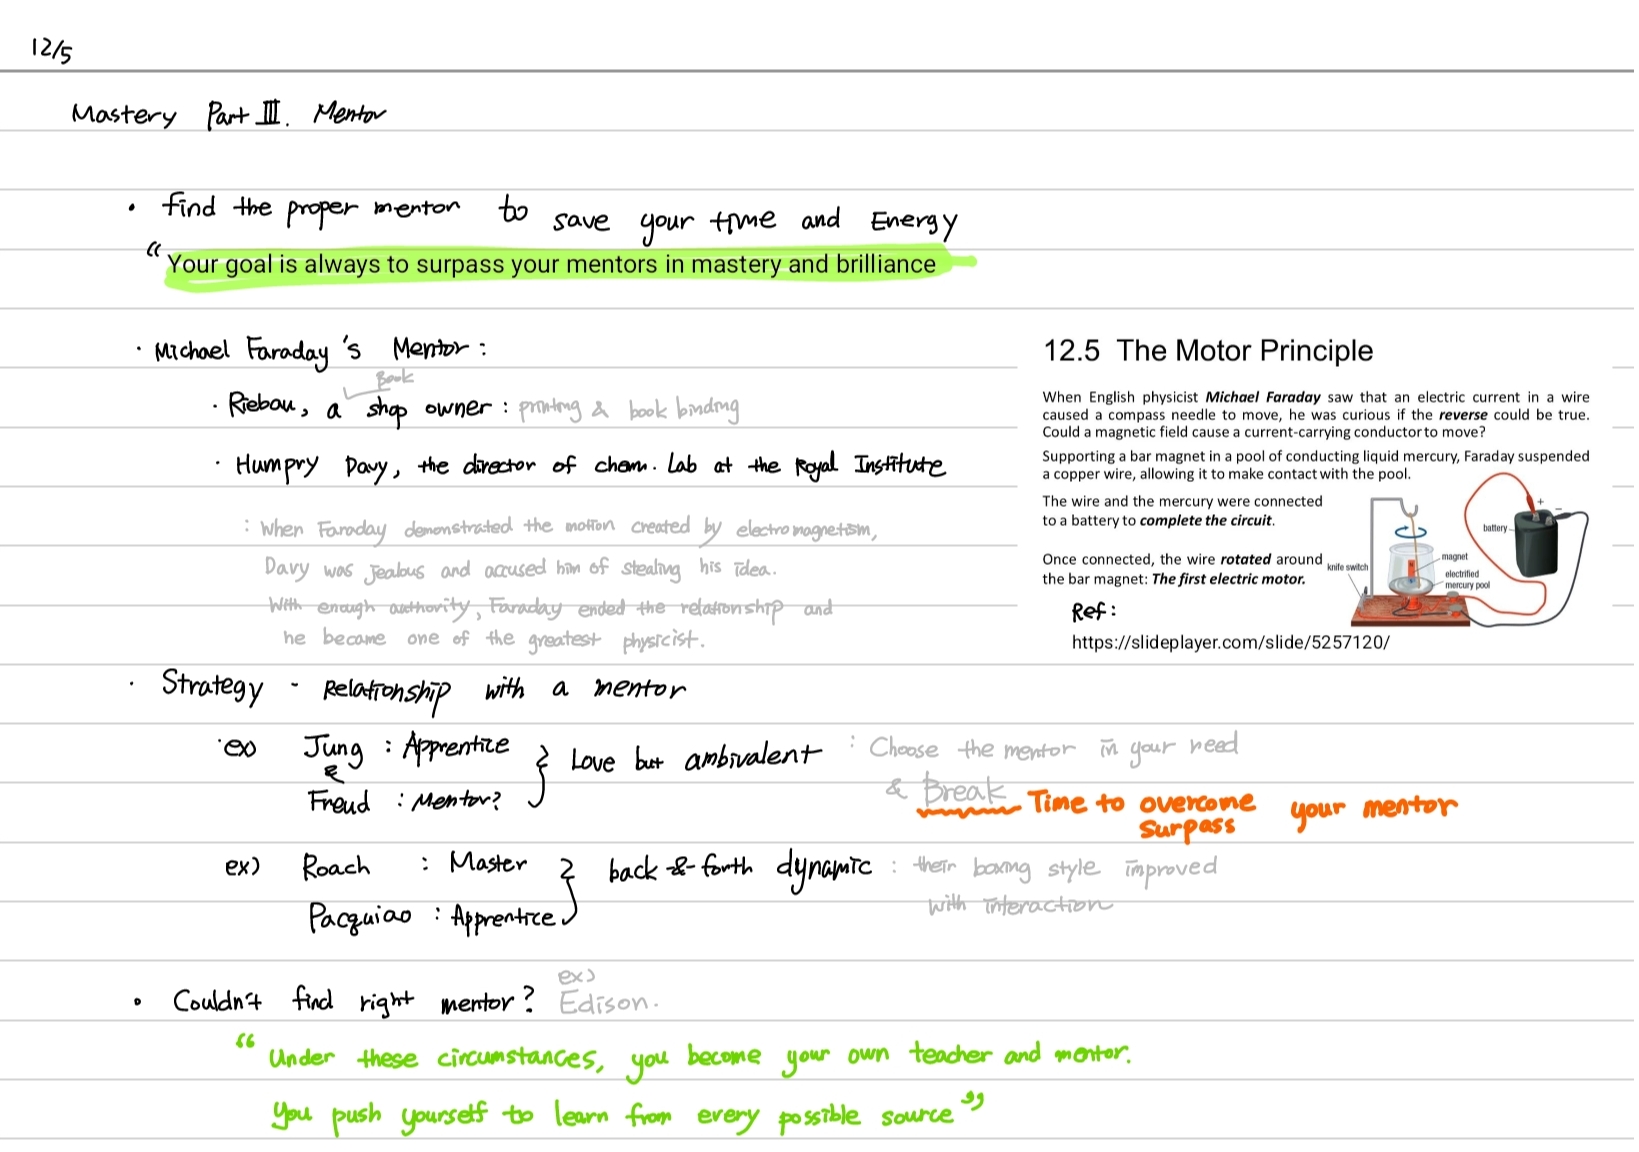 12/5
Mastery Part III. Mentor
• Find the proper mentor to save your time and Energy
“ Your goal is always to surpass your mentors in mastery and brilliance
· Michael Faraday's Mentor :
Book
· Riebau, a shop owner : printing & book binding
· Humpry Davy, the director of chem. Lab at the Royal Institute
: When Faraday demonstrated the motion created by electromagnetism,
Davy was jealous and accused him of stealing his idea.
With enough authority, Faraday ended the relationship and
he became one of the greatest physicist.
12.5 The Motor Principle
When English physicist Michael Faraday saw that an electric current in a wire
caused a compass needle to move, he was curious if the reverse could be true.
Could a magnetic field cause a current-carrying conductor to move?
Supporting a bar magnet in a pool of conducting liquid mercury, Faraday suspended
a copper wire, allowing it to make contact with the pool.
The wire and the mercury were connected
to a battery to complete the circuit.
Once connected, the wire rotated around
the bar magnet: The first electric motor.
battery
+
−
magnet
knife switch
electrified
mercury pool
Ref :
https://slideplayer.com/slide/5257120/
· Strategy - Relationship with a mentor
·ex Jung : Apprentice
&
Freud : Mentor?
Love but ambivalent : Choose the mentor in your need
& Break Time to overcome your mentor
surpass
ex) Roach : Master
Pacquiao : Apprentice
back-&-forth dynamic : their boxing style improved
with interaction
ex)
• Couldn't find right mentor? Edison.
“ Under these circumstances, you become your own teacher and mentor.
You push yourself to learn from every possible source ”